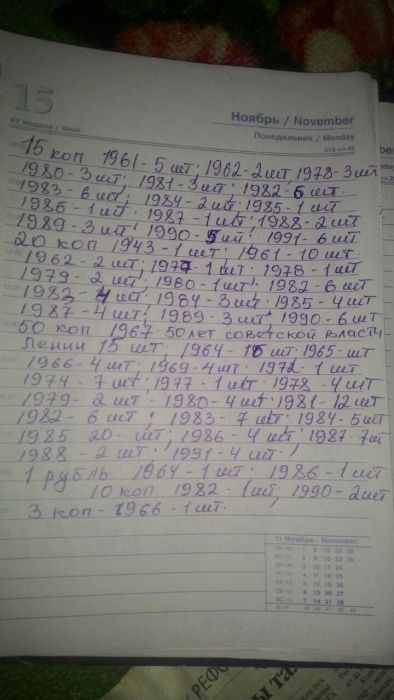 15
47 Неделя / Week
Ноябрь / November
Понедельник / Monday
15 коп 1961-5 шт; 1962-2шт 1978-3шт
1980-3шт; 1981-3шт; 1982-6 шт.
1983-6 шт; 1984-2шт; 1985-1 шт
1986-1шт; 1987-1шт; 1988-2 шт
1989-3шт; 1990-5шт; 1991-6 шт
20 коп 1943-1 шт; 1961-10 шт.
1962-2 шт; 1977-1 шт; 1978-1шт
1979-2 шт, 1980-1шт; 1982-6 шт
1983-4 шт; 1984-3шт; 1985-4 шт
1987-4 шт; 1989-3 шт; 1990-6 шт
50 коп 1967-50 лет советской власти-
Ленин 15 шт, 1964-16 шт; 1965- шт
1966-4 шт; 1969-4шт; 1972-1 шт
1974-7 шт; 1977-1 шт; 1978-4 шт
1979-2 шт; 1980-4 шт; 1981-12 шт
1982-6 шт; 1983-7 шт; 1984-5шт
1985 20- шт; 1986-4 шт; 1987-7шт
1988-2 шт; 1991-4 шт.
1 рубль 1964-1 шт; 1986-1 шт
10 коп 1982-1шт; 1990-2шт
3 коп-1966-1шт.
11 Ноябрь - November